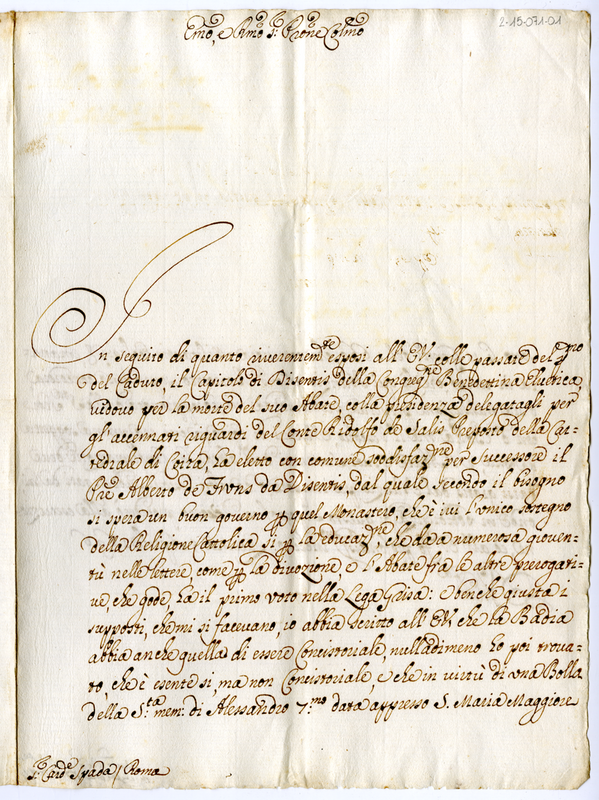 2-15-071-01
Emo, e Rmo Sr. Prone Colmo
In seguito di quanto riverentemte esposi all' EV. colle passate del pmo
del Caduto, il Capitolo di Disentis della Congregne Benedettina Elvetica,
vidovo per la morte del suo Abate, colla presidenza delegatagli per
gl' accennati riguardi del Conte Ridolfo de Salis Preposto della Cat-
tedrale di Coira, ha eletto con comune soddisfazne per successore il
Pre Alberto de Funs da Disentis, dal quale secondo il bisogno
si spera un buon governo p quel Monastero, che è ivi l'unico sostegno
della Religione Cattolica sì p la educazne, che dà a numerosa gioven-
tù nelle lettere, come p la divozione, e l'Abate frà le altre prerogati-
ve, che gode, hà il primo voto nella Lega Grisa: e benche giusta i
supposti, che mi si facevano, io abbia scritto all' EV. che la Badia
abbia anche quella di essere Concistoriale, nulladimeno hò poi trova-
to, che è esente sì, ma non Concistoriale, e che in virtù di una Bolla
della S.ta mem: di Alessandro 7.mo data appresso S. Maria Maggiore
Sr. Carde Spada / Roma